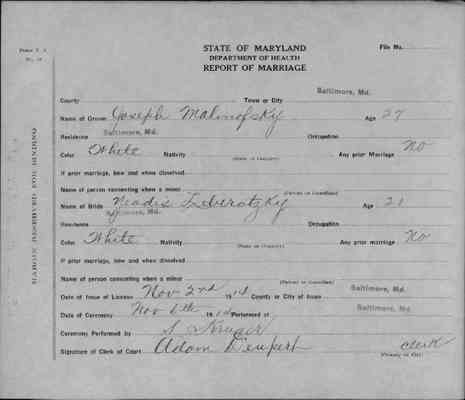 STATE OF MARYLAND
DEPARTMENT OF HEALTH
REPORT OF MARRIAGE
File No.
MARGIN RESERVED FOR BINDING
Baltimore, Md.
County Town or City
Name of Groom Joseph Malinofsky Age 27
Residence Baltimore, Md. Occupation
Color White Nativity (State or Country) Any prior Marriage No
If prior marriage, how and when dissolved
Name of person consenting when a minor (Parent or Guardian)
Name of Bride Age 21
Residence Baltimore, Md. Occupation
Color White Nativity (State or Country) Any prior marriage No
If prior marriage, how and when dissolved
Name of person consenting when a minor (Parent or Guardian)
Date of Issue of License Nov 2nd 1914 County or City of Issue Baltimore, Md.
Date of Ceremony Nov 1914 Performed at Baltimore, Md.
Ceremony Performed by S Kruger
Signature of Clerk of Court Adam Deupert clerk
(County or City)